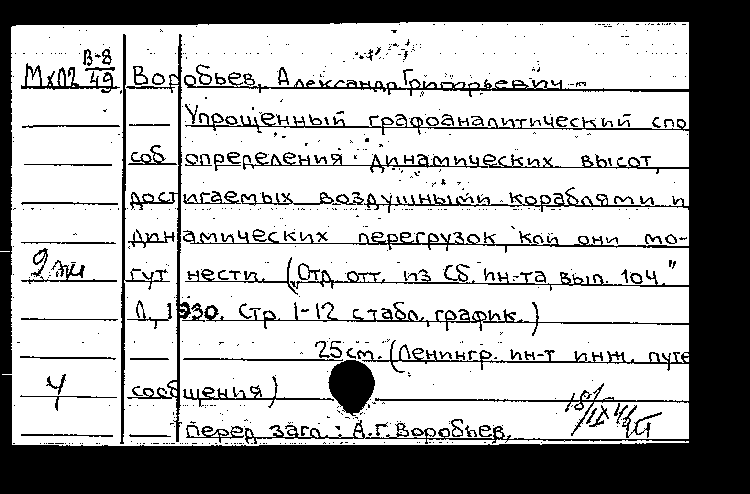 В-8
МхП2 49 Воробьев, Александр Григорьевич
Упрощенный графоаналитический спо
соб определения динамических высот,
достигаемых воздушными кораблями и
динамических перегрузок, кои они мо-
2 эк гут нести. („Отд. отт. из Сб. ин-та, вып. 104."
Л., 1930. Стр. 1-12 с табл., график.)
25 см. (Ленингр. ин-т инж. путе
4 сообщения)
Перед загл.: А.Г. Воробьев,